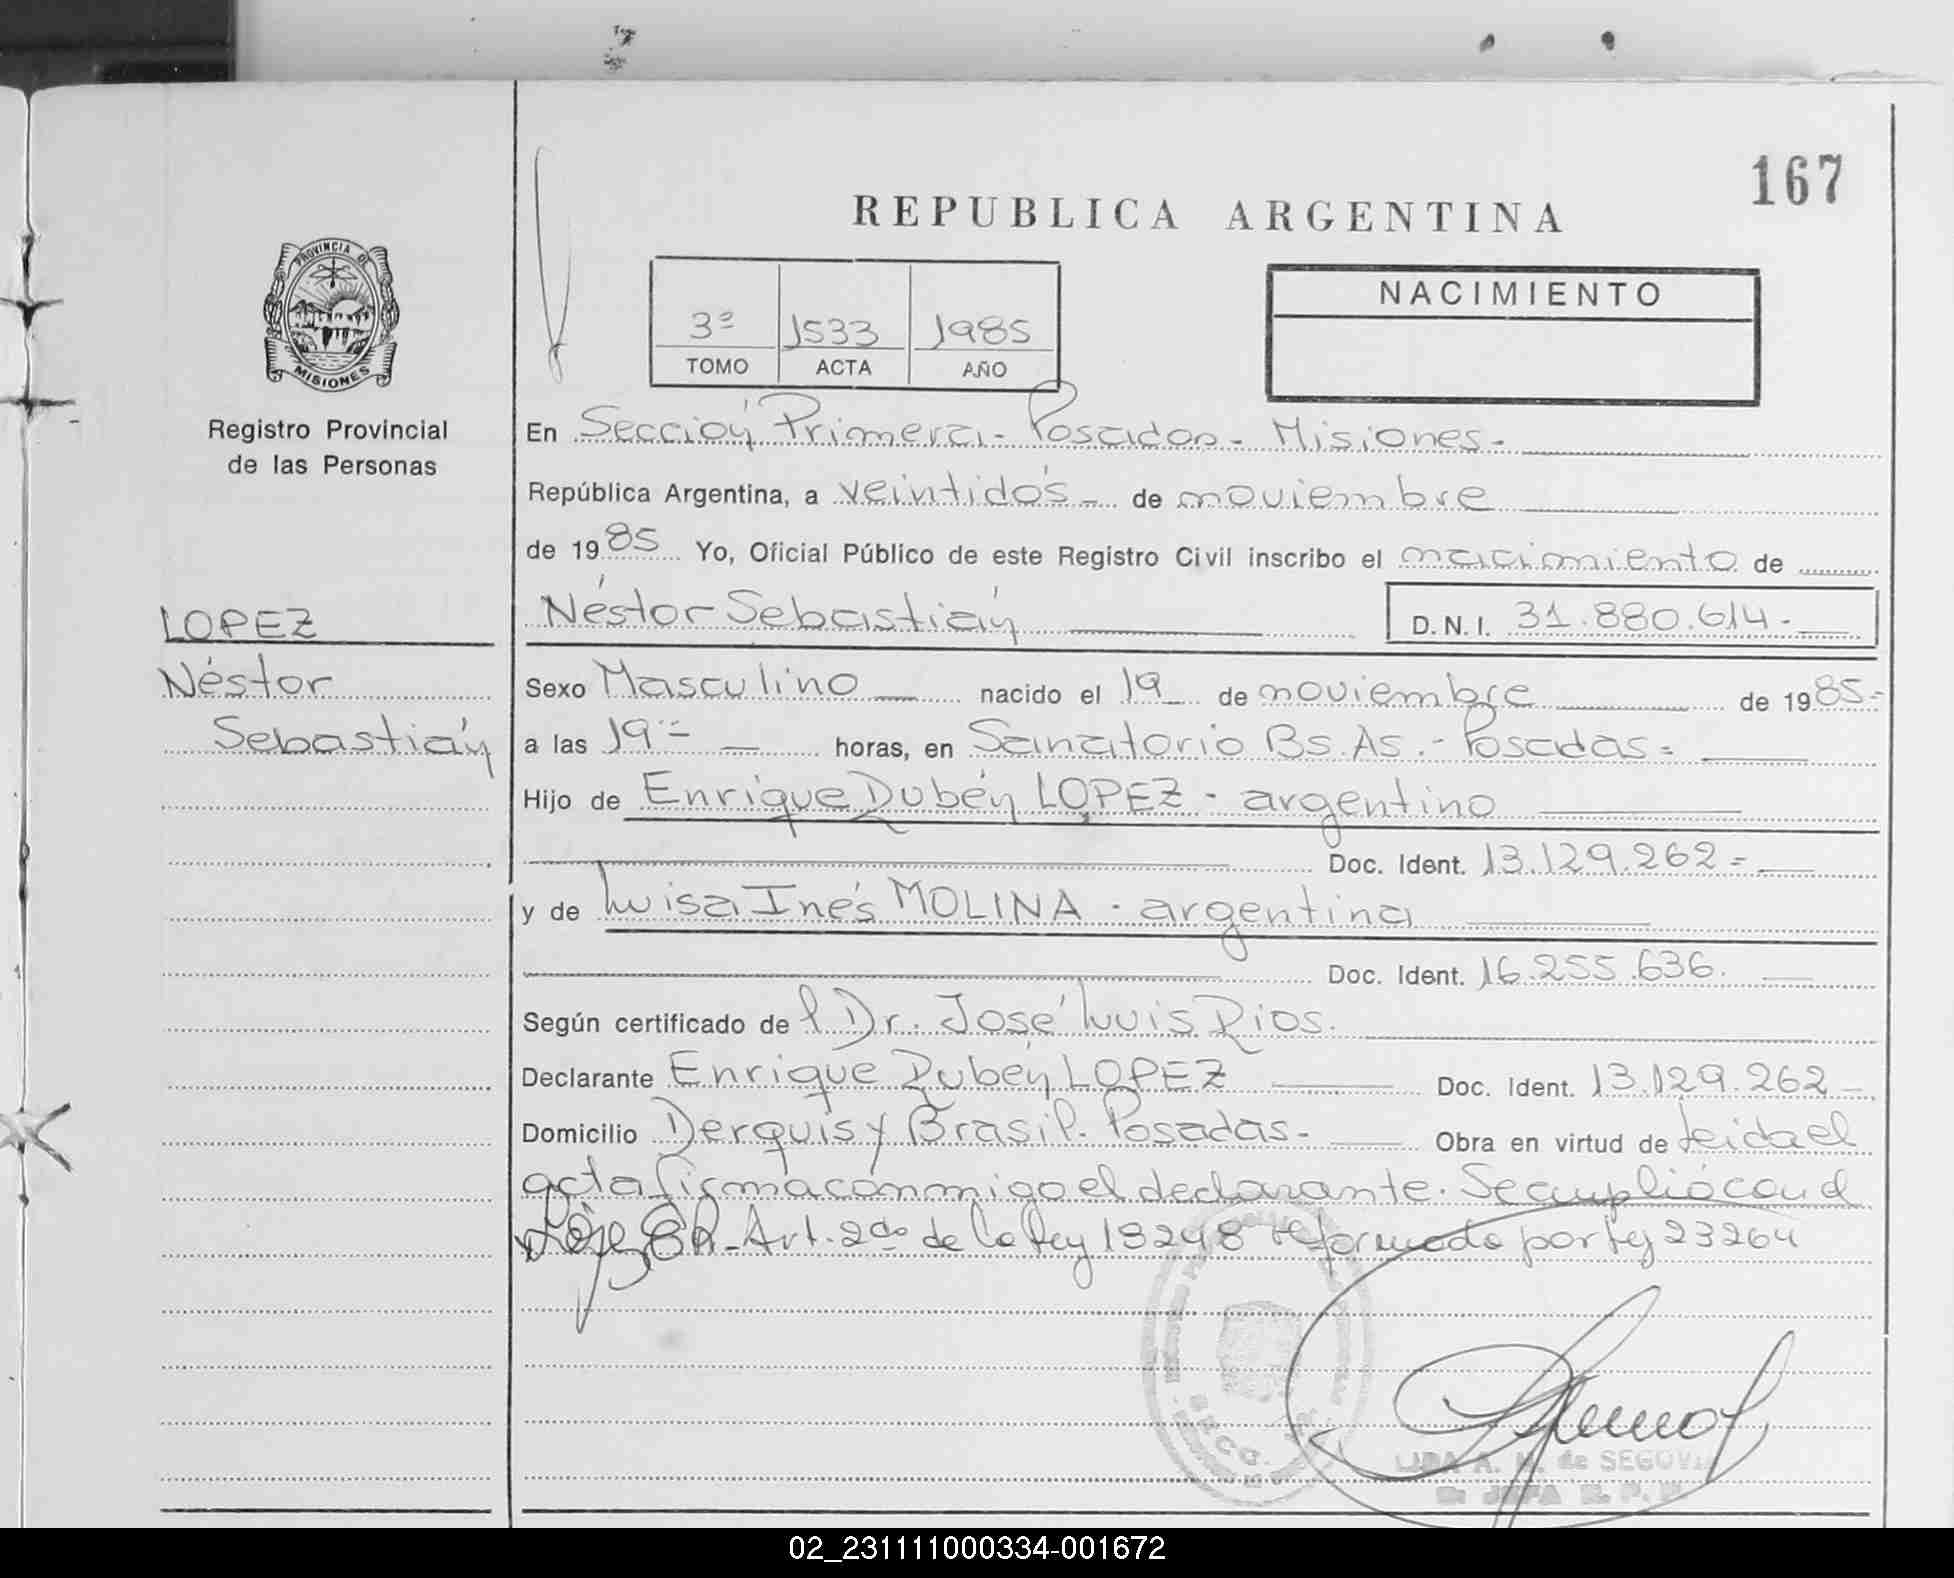 167
REPUBLICA ARGENTINA
PROVINCIA DE
MISIONES
Registro Provincial
de las Personas
3º 1533 1985
TOMO ACTA AÑO
NACIMIENTO
En Sección Primera - Posadas - Misiones -
República Argentina, a veintidós - de noviembre
de 1985 Yo, Oficial Público de este Registro Civil inscribo el nacimiento de
LOPEZ
Néstor
Sebastián
Néstor Sebastián D.N.I. 31.880.614.-
Sexo Masculino nacido el 19 de noviembre de 1985.-
a las 19 horas, en Sanatorio Bs. As. - Posadas -
Hijo de Enrique Rubén LOPEZ - argentino
Doc. Ident. 13.129.262 -
y de Luisa Inés MOLINA - argentina
Doc. Ident. 16.255.636.
Según certificado del Dr. José Luis Rios.
Declarante Enrique Rubén LOPEZ Doc. Ident. 13.129.262 -
Domicilio Derquis y Brasil - Posadas - Obra en virtud de Leida el
acta firma conmigo el declarante. Se cumplió con el
Art. 2do de la Ley 18248 reformado por Ley 23264
de SEGOVIA
02_231111000334-001672